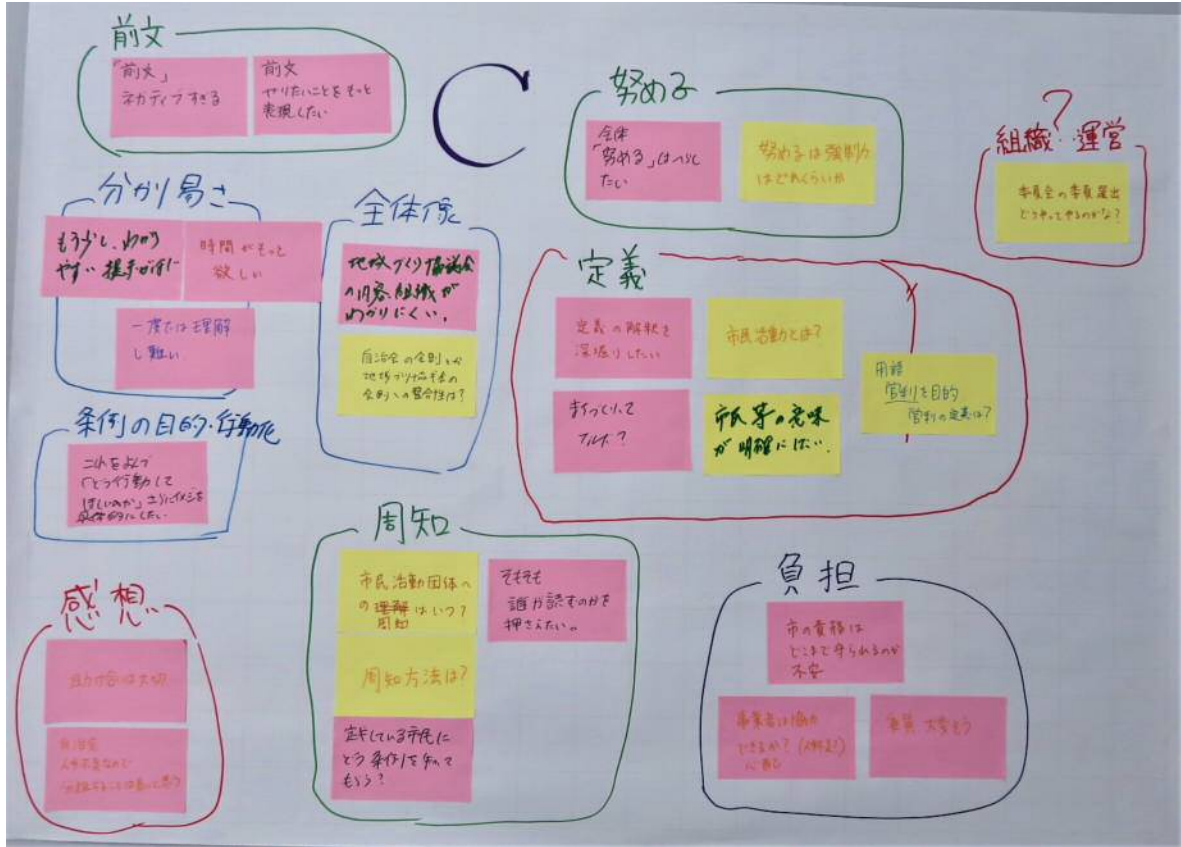 前文
「前文」
ネガティブすぎる
前文
やりたいことをもっと
表現したい
C
努める
全体
「努める」はへらし
たい
努めるは強制力
はどれくらいか
?
組織・運営
委員会の委員選出
どうやってやるのかな?
分かり易さ
もう少し、わかり
やすい
時間がもっと
欲しい
一度では理解
し難い
全体像
地域づくり協議会
の内容、組織が
わかりにくい。
自治会の会則と
地域づくり協議会の
会則との整合性は?
定義
定義の解釈を
深堀りしたい
市民活動とは?
まちづくりって
ナルホ?
市民等の意味
が明確にほしい
用語
営利を目的
営利の定義は?
条例の目的・行動化
これをよんで
「どう行動して
ほしいのか」さらにイメージを
具体的にしたい
周知
市民活動団体へ
の理解はいつ?
周知
そもそも
誰が読むのかを
押さえたい。
周知方法は?
どう条例を知って
もらう?
負担
市の責務は
どこまで守られるのか
不安
事業者は協力
できるか?
心配
大変そう
感想
は大切
自治会
人手不足なので